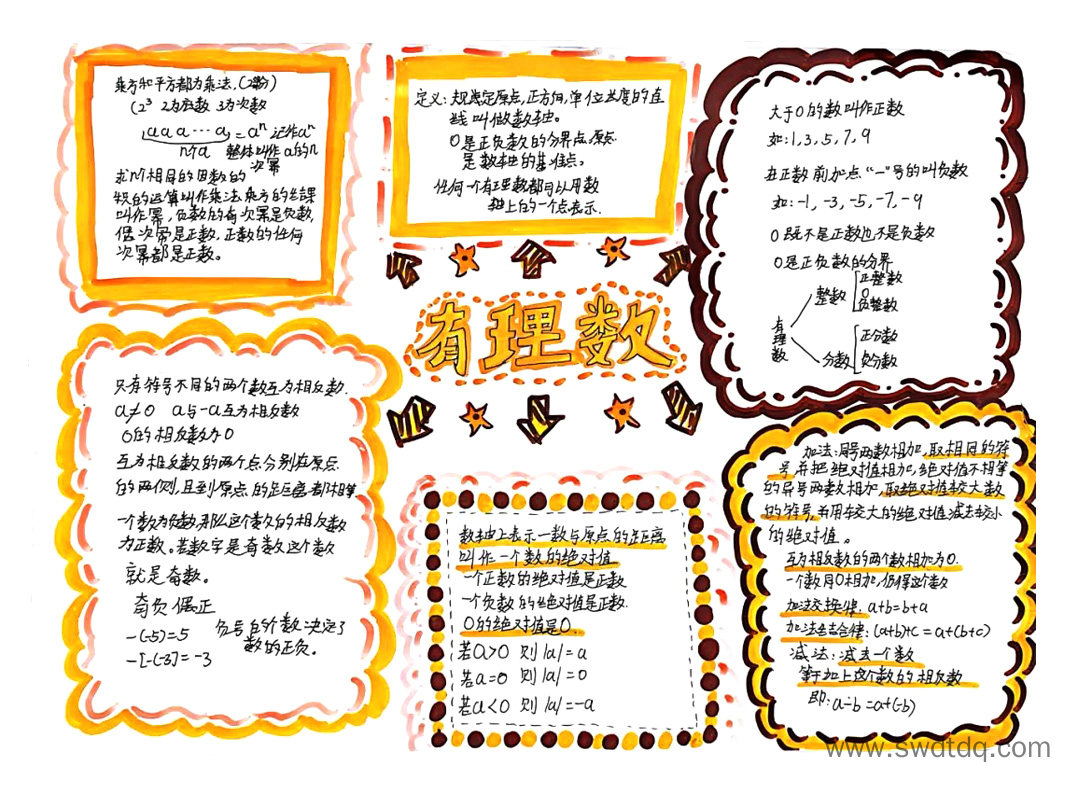 乘方和平方都为乘法.(2勤)
(2³ 2为底数 3为次数
a a a … a = aⁿ 记作aⁿ
n个a 整体叫作a的n
次幂
求n个相同的因数的
的运算叫作乘法.乘方的结果
叫作幂,负数的奇次幂是负数,
偶次幂是正数,正数的任何
次幂都是正数。
定义:规定原点,正方向,单位长度的直
线叫做数轴。
0是正负数的分界点,原点
是数轴的基准点。
任何一个有理数都可以用数
轴上的一个点表示.
大于0的数叫作正数
如:1,3,5,7,9
在正数前加点"-"号的叫负数
如:-1,-3,-5,-7,-9
0既不是正数也不是负数
0是正负数的分界
有理数
整数
正整数
0
负整数
分数
正分数
负分数
有理数
只有符号不同的两个数互为相反数.
a≠0 a与-a互为相反数
0的相反数为0
互为相反数的两个点分别在原点
的两侧,且到原点的距离都相等
一个数为负数,那么这个数的相反数
为正数。若数字是奇数这个数
就是奇数。
奇负偶正
-(-5)=5 负号的个数决定了
数的正负。
-[-(-3]=-3
数轴上表示一数与原点的距离
叫作一个数的绝对值
一个正数的绝对值是正数
一个负数的绝对值是正数.
0的绝对值是0.
若a>0 则|a|=a
若a=0 则|a|=0
若a<0 则|a|=-a
加法:同号两数相加,取相同的符
号并把绝对值相加,绝对值不相等
的异号两数相加,取绝对值较大数
的符号,并用较大的绝对值减去较小
的绝对值。
互为相反数的两个数相加为0.
一个数同0相加,仍得这个数
加法交换律:a+b=b+a
加法结合律:(a+b)+c=a+(b+c)
减法:减去一个数
等于加上这个数的相反数
即:a-b=a+(-b)
www.swdtdq.com